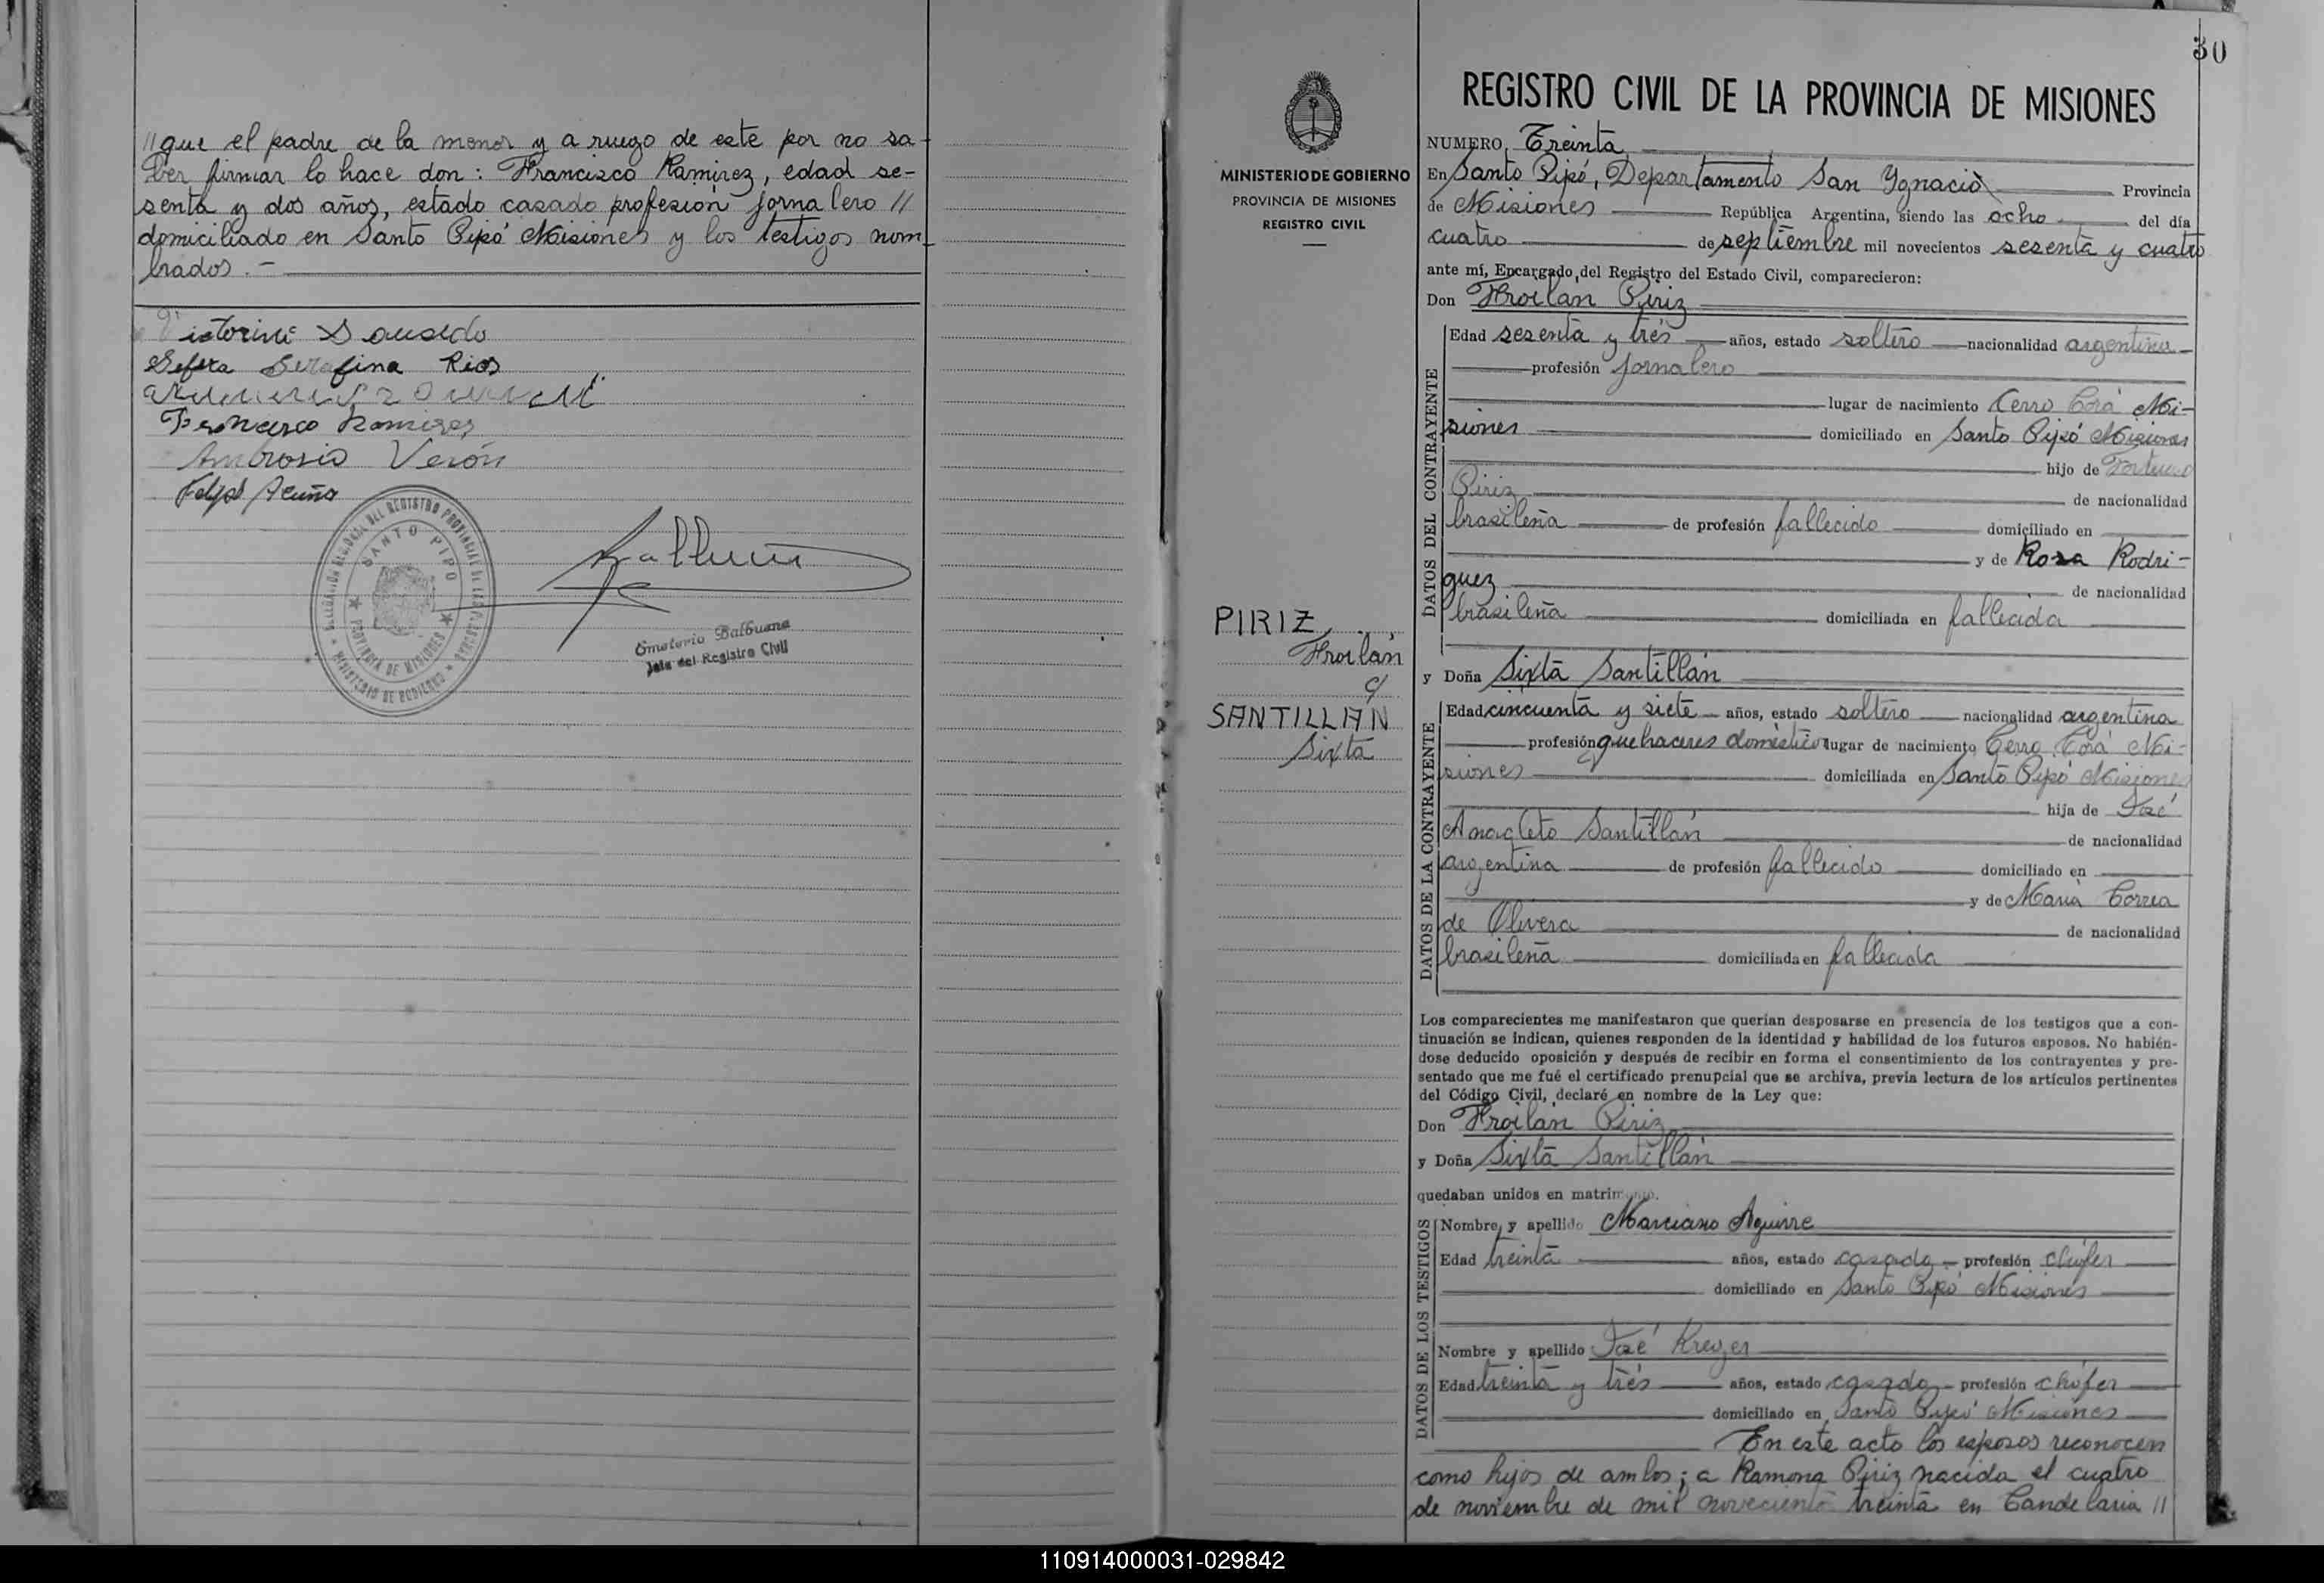 //que el padre de la menor y a ruego de este por no sa-
ber firmar lo hace don: Francisco Ramirez, edad se-
senta y dos años, estado casado profesión jornalero //
domiciliado en Santo Pipó Misiones y los testigos nom-
brados.-
Sefera Serafina Rios
Francisco Ramirez
Ambrosio Verón
Felipe Acuña
DEL REGISTRO PROVINCIAL DE LAS PERSONAS
SANTO PIPO
PROVINCIA DE MISIONES
MINISTERIO DE GOBIERNO
Emeterio Balbuena
Jefe del Registro Civil
30
MINISTERIO DE GOBIERNO
PROVINCIA DE MISIONES
REGISTRO CIVIL
PIRIZ,
Froilán
c/
SANTILLÁN
Sixta
REGISTRO CIVIL DE LA PROVINCIA DE MISIONES
NUMERO Treinta
En Santo Pipó, Departamento San Ygnacio Provincia
de Misiones República Argentina, siendo las ocho del día
cuatro de septiembre mil novecientos sesenta y cuatro
ante mí, Encargado del Registro del Estado Civil, comparecieron:
Don Froilán Piriz
DATOS DEL CONTRAYENTE
Edad sesenta y tres años, estado soltero nacionalidad argentina
profesión jornalero
lugar de nacimiento Cerro Corá Mi-
siones domiciliado en Santo Pipó Misiones
hijo de
Piriz de nacionalidad
brasileña de profesión fallecido domiciliado en
y de Rosa Rodri-
guez de nacionalidad
brasileña domiciliada en fallecida
y Doña Sixta Santillán
DATOS DE LA CONTRAYENTE
Edad cincuenta y siete años, estado soltero nacionalidad argentina
profesión quehaceres doméstico lugar de nacimiento Cerro Corá Mi-
siones domiciliada en Santo Pipó Misiones
hija de José
Anacleto Santillán de nacionalidad
argentina de profesión fallecido domiciliado en
y de Maria Correa
de Olivera de nacionalidad
brasileña domiciliada en fallecida
Los comparecientes me manifestaron que querían desposarse en presencia de los testigos que a con-
tinuación se indican, quienes responden de la identidad y habilidad de los futuros esposos. No habién-
dose deducido oposición y después de recibir en forma el consentimiento de los contrayentes y pre-
sentado que me fué el certificado prenupcial que se archiva, previa lectura de los artículos pertinentes
del Código Civil, declaré en nombre de la Ley que:
Don Froilán Piriz
y Doña Sixta Santillán
quedaban unidos en matrimonio.
DATOS DE LOS TESTIGOS
Nombre y apellido Marciano Aguirre
Edad treinta años, estado casado profesión chófer
domiciliado en Santo Pipó Misiones
Nombre y apellido José Kreger
Edad treinta y tres años, estado casado profesión chófer
domiciliado en Santo Pipó Misiones
En este acto los esposos reconocen
como hijos de ambos; a Ramona Piriz nacida el cuatro
de noviembre de mil novecientos treinta en Candelaria //
110914000031-029842